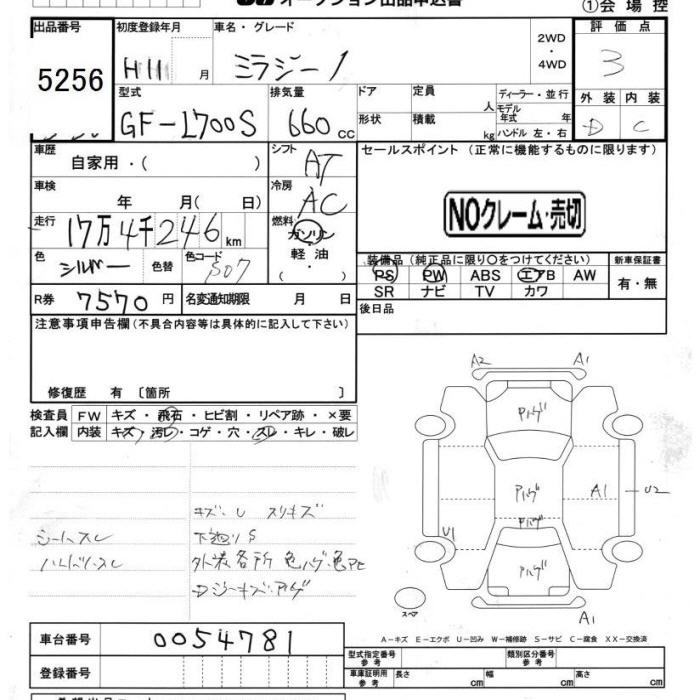 オークション出品申込書
①会場控
出品番号 初度登録年月 車名・グレード 2WD・4WD 評価点
5256 H11 月 ミラジーノ 3
型式 排気量 ドア 定員 人 ディーラー・並行 外装 内装
GF-L700S 660 cc 形状 積載 kg モデル年式 年 ハンドル 左・右 D C
車歴 自家用・( ) シフト AT セールスポイント (正常に機能するものに限ります)
車検 年 月( 日) 冷房 AC NOクレーム・売切
走行 17万4千246km 燃料 ガソリン・軽油・( )
色 シルバー 色替 色コード S07 装備品 (純正品に限り○をつけてください) 新車保証書
PS PW ABS エアB AW 有・無
SR ナビ TV カワ
R券 7570円 名変通知期限 月 日 後日品
注意事項申告欄(不具合内容等は具体的に記入して下さい)
修復歴 有 〔箇所 〕
検査員記入欄 FW キズ・飛石・ヒビ割・リペア跡・×要
内装 キズ・汚レ・コゲ・穴・スレ・キレ・破レ
キズ U スリキズ
シートスレ 下廻りS
ハンドルスレ 外装各所 色ハゲ・色アセ
A2 A1
Pハゲ
Pハゲ A1 U2
Pハゲ
U1
Pハゲ
スペア A1
A-キズ E-エクボ U-凹み W-補修跡 S-サビ C-腐食 XX-交換済
車台番号 0054781 型式指定番号 参考 類別区分番号 参考
登録番号 車庫証明用 参考 長さ cm 幅 cm 高さ cm